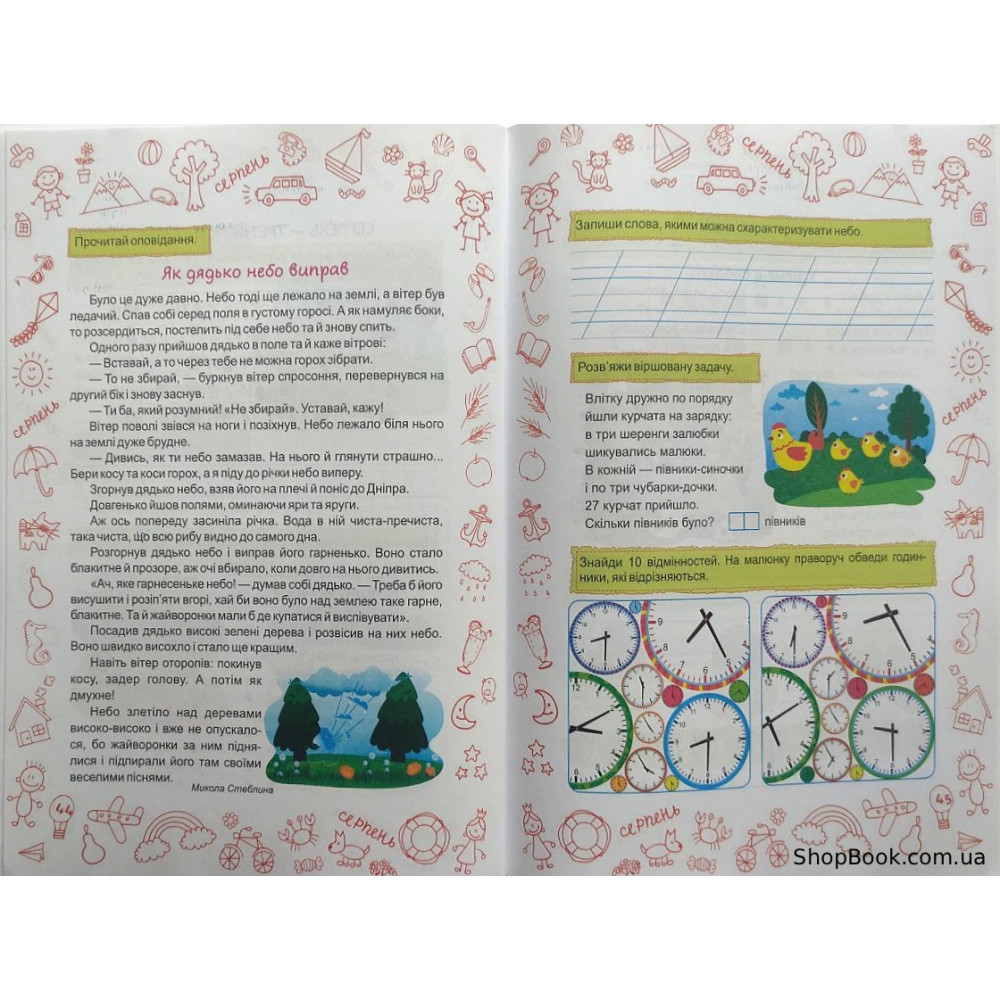 серпень
серпень
Прочитай оповідання.
Як дядько небо виправ
Було це дуже давно. Небо тоді ще лежало на землі, а вітер був
ледачий. Спав собі серед поля в густому горосі. А як намуляє боки,
то розсердиться, постелить під себе небо та й знову спить.
Одного разу прийшов дядько в поле та й каже вітрові:
— Вставай, а то через тебе не можна горох зібрати.
— То не збирай, — буркнув вітер спросоння, перевернувся на
другий бік і знову заснув.
— Ти ба, який розумний! «Не збирай». Уставай, кажу!
Вітер поволі звівся на ноги і позіхнув. Небо лежало біля нього
на землі дуже брудне.
— Дивись, як ти небо замазав. На нього й глянути страшно...
Бери косу та коси горох, а я піду до річки небо виперу.
Згорнув дядько небо, взяв його на плечі й поніс до Дніпра.
Довгенько йшов полями, оминаючи яри та яруги.
Аж ось попереду засиніла річка. Вода в ній чиста-пречиста,
така чиста, що всю рибу видно до самого дна.
Розгорнув дядько небо і виправ його гарненько. Воно стало
блакитне й прозоре, аж очі вбирало, коли довго на нього дивитись.
«Ач, яке гарнесеньке небо! — думав собі дядько. — Треба б його
висушити і розіп'яти вгорі, хай би воно було над землею таке гарне,
блакитне. Та й жайворонки мали б де купатися й виспівувати».
Посадив дядько високі зелені дерева і розвісив на них небо.
Воно швидко висохло і стало ще кращим.
Навіть вітер оторопів: покинув
косу, задер голову. А потім як
дмухне!
Небо злетіло над деревами
високо-високо і вже не опускало-
ся, бо жайворонки за ним підня-
лися і підпирали його там своїми
веселими піснями.
Микола Стеблина
44
серпень
серпень
Запиши слова, якими можна схарактеризувати небо.
Розв'яжи віршовану задачу.
Влітку дружно по порядку
йшли курчата на зарядку:
в три шеренги залюбки
шикувались малюки.
В кожній — півники-синочки
і по три чубарки-дочки.
27 курчат прийшло.
Скільки півників було? півників
серпень
Знайди 10 відмінностей. На малюнку праворуч обведи годин-
ники, які відрізняються.
серпень
45
ShopBook.com.ua